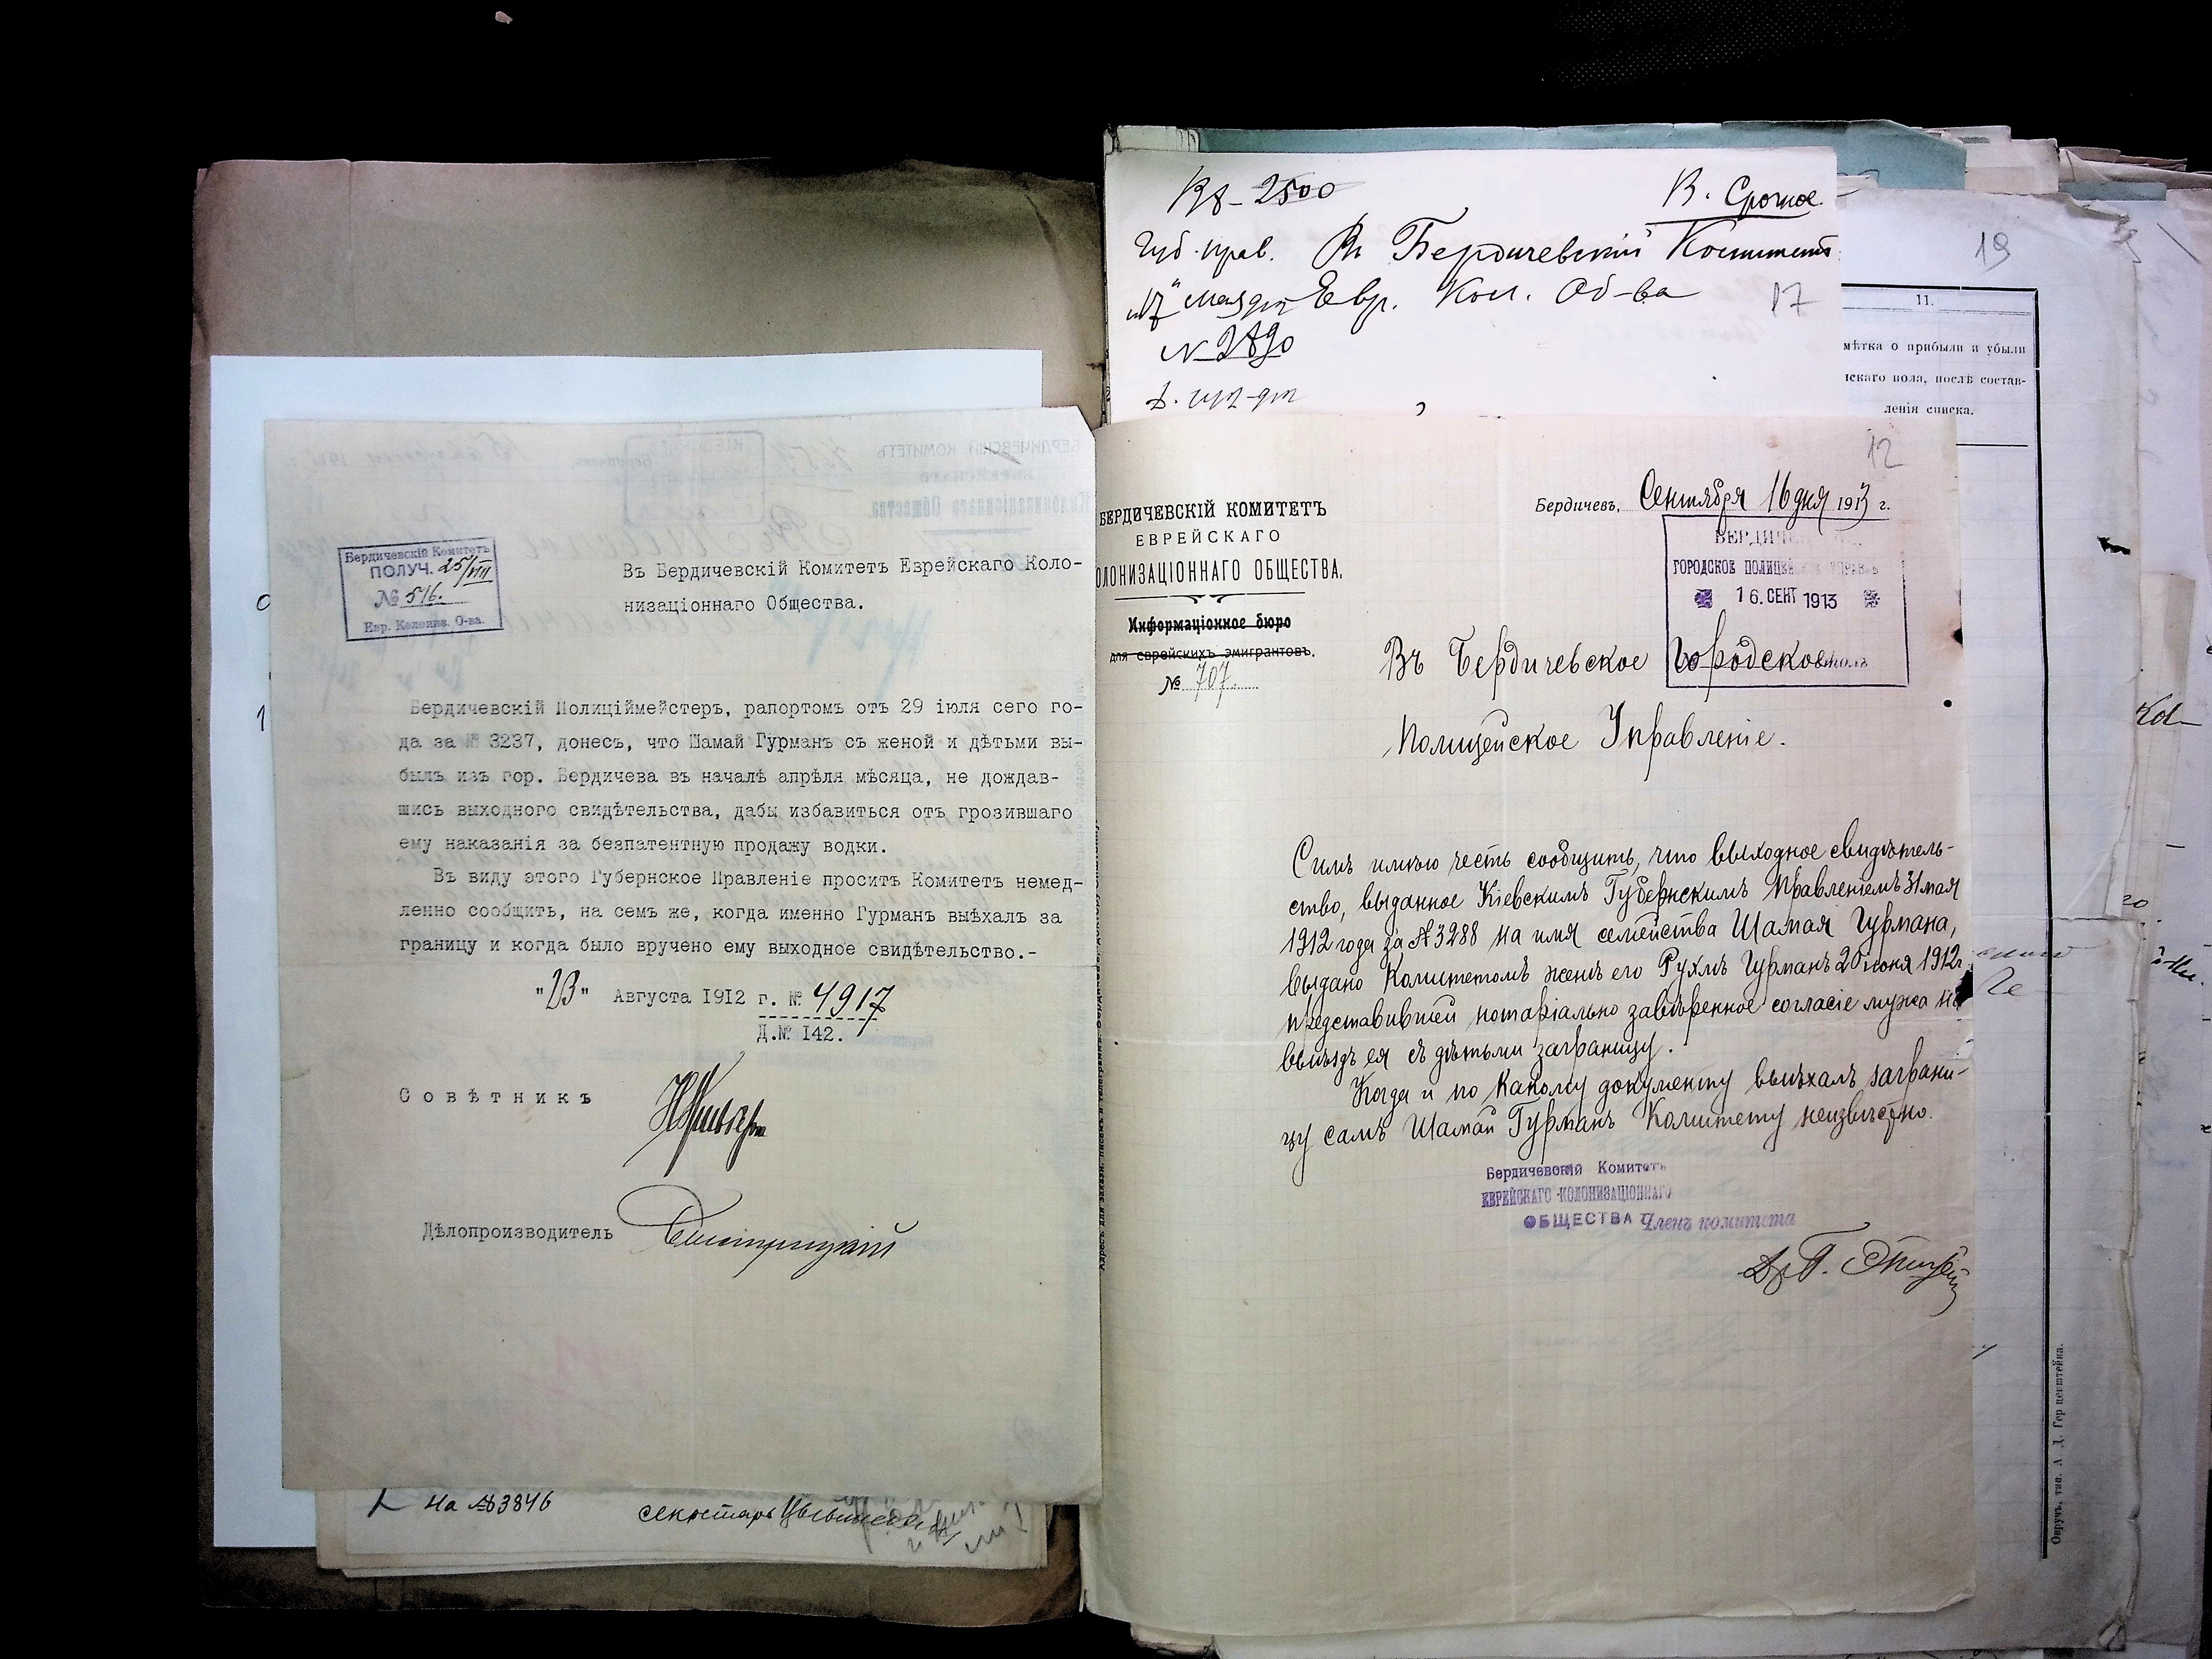 Бердичевскій Комитетъ
ПОЛУЧ. 25/VIII
№ 516.
Евр. Колониз. О-ва.
Въ Бердичевскій Комитетъ Еврейскаго Коло-
низаціоннаго Общества.
Бердичевскій Полиціймейстеръ, рапортомъ отъ 29 іюля сего го-
да за № 3237, донесъ, что Шамай Гурманъ съ женой и дѣтьми вы-
былъ изъ гор. Бердичева въ началѣ апрѣля мѣсяца, не дождав-
шись выходного свидѣтельства, дабы избавиться отъ грозившаго
ему наказанія за безпатентную продажу водки.
Въ виду этого Губернское Правленіе проситъ Комитетъ немед-
ленно сообщить, на семъ же, когда именно Гурманъ выѣхалъ за
границу и когда было вручено ему выходное свидѣтельство.-
"23" Августа 1912 г. № 4917
Д.№ 142.
Совѣтникъ
Дѣлопроизводитель
на №3846
секретарь
2500
В. Срочное.
Губ. прав. Въ Бердичевскій Комитетъ
17 Евр. Кол. Об-ва
17
№ 2890
19
11.
мѣтка о прибыли и убыли
нскаго пола, послѣ состав-
ленія списка.
12
БЕРДИЧЕВСКІЙ КОМИТЕТЪ
ЕВРЕЙСКАГО
ОЛОНИЗАЦІОННАГО ОБЩЕСТВА.
Информаціонное бюро
для еврейскихъ эмигрантовъ.
№ 707.
Бердичевъ, Сентября 16 дня 1913 г.
ГОРОДСКОЕ ПОЛИЦЕЙСКОЕ УПРАВЛ
16. СЕНТ 1913
Въ Бердичевское Городское
Полицейское Управленіе.
Симъ имѣю честь сообщить, что выходное свидѣтель-
ство, выданное Кіевскимъ Губернскимъ Правленіемъ 31 мая
1912 года за № 3288 на имя семейства Шамая Гурмана,
выдано Комитетомъ женѣ его Рухлѣ Гурманъ 20 іюня 1912 г
представившей нотаріально завѣренное согласіе мужа на
выѣздъ ея съ дѣтьми заграницу.
Когда и по какому документу выѣхалъ заграни-
цу самъ Шамай Гурманъ Комитету неизвѣстно.
Бердичевскій Комитетъ
ЕВРЕЙСКАГО КОЛОНИЗАЦІОННАГО
ОБЩЕСТВА Членъ комитета
Овручъ, тип. А. Д. Герценштейна.